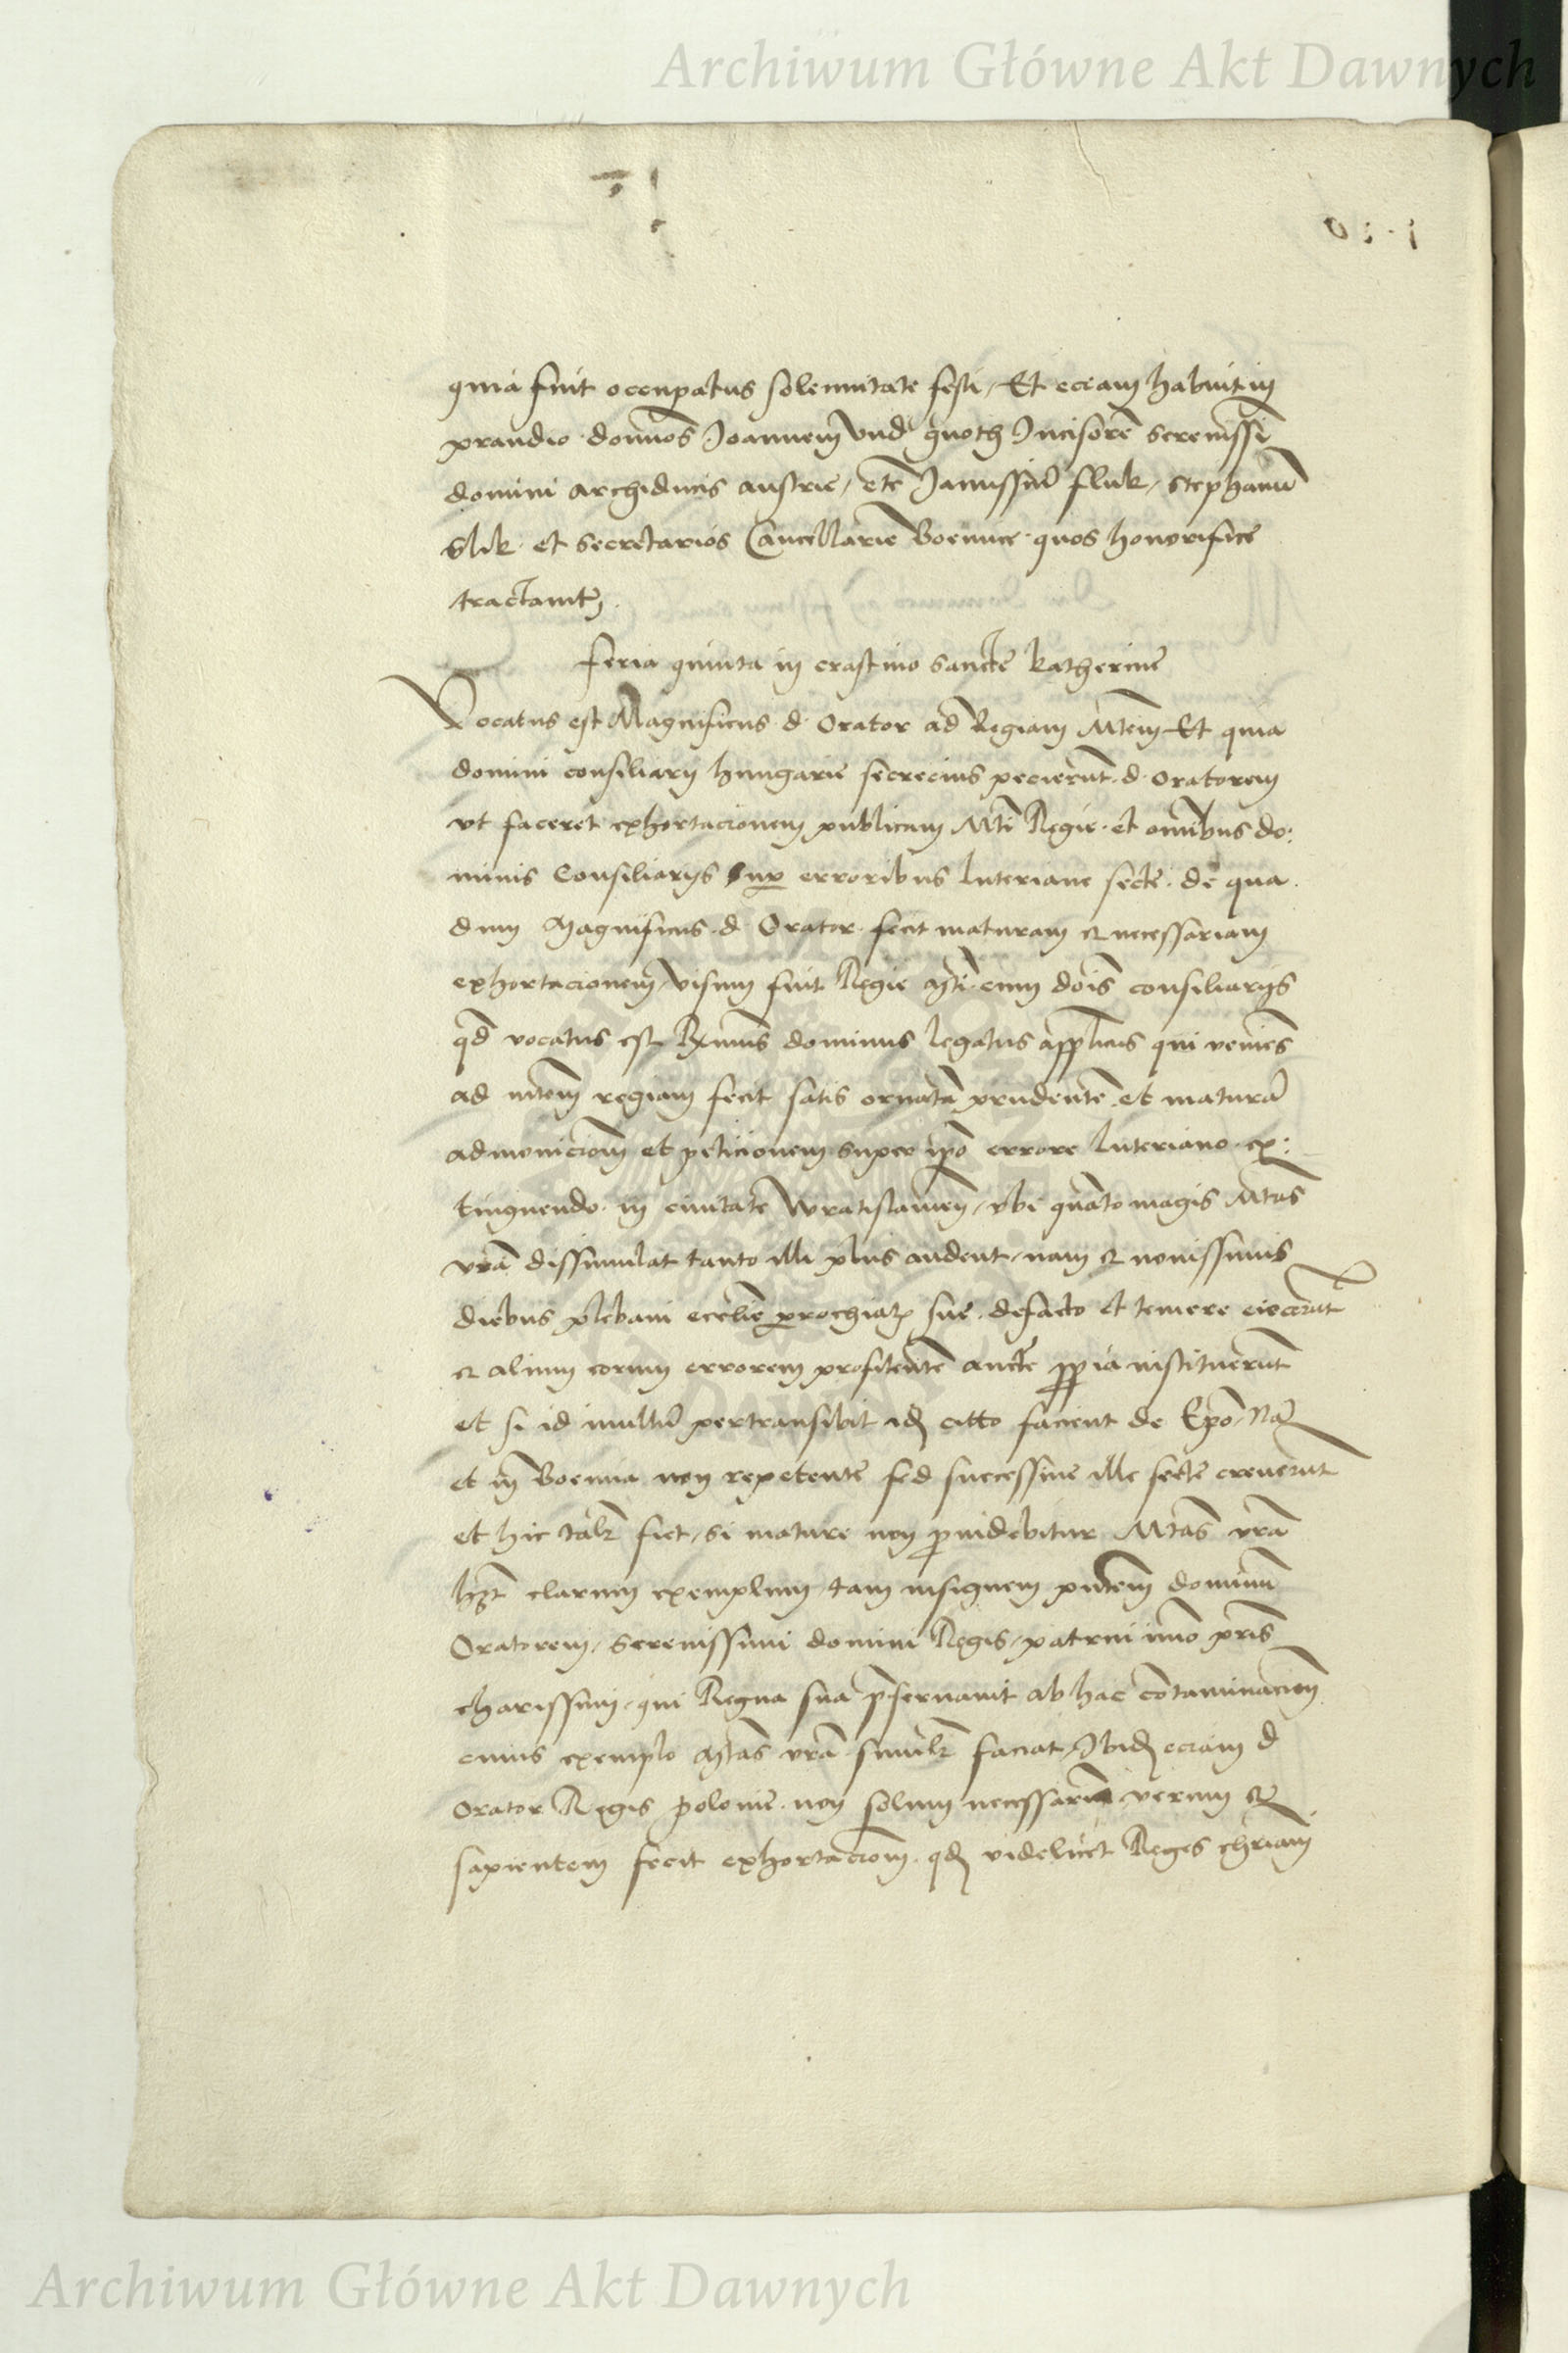 Archiwum Główne Akt Dawnych
quia fuit occupatus solennitate festi, Et eciam habuit in
prandio dominos Joannem Und gnoth Incisorē serenissī
domini archiducis austrie, etē Janussiū fluk, Stephanū
Slik et secretarios Cancellarie Boemice quos honorifice
tractauit
feria quinta in crastino sancte katherine
Vocatus est Magnificus d. Orator ad Regiam Mtem Et quia
domini consiliarij hungarie secrecius pecierūt d. oratorem
vt faceret exhortacionem publicam Mti Regie et omībus do:
minis Consiliarijs Sup erroribus luteriane secte de qua
dum Magnificus d. Orator fecit maturam et necessariam
exhortacionem, visum fuit Regie Mti cum dōis consiliarijs
qd vocatus est Rmus dominus legatus applicus qui veniēs
ad mtem regiam fecit satis ornatā prudentē et maturā
admonicioem et peticionem super ipo errore luteriano ex:
tinguendo in ciuitate Wratislauien, vbi quāto magis Mtas
vrā dissimulat tanto illi plus audent, nam et nouissimis
diebus plebani ecclie parochialē sue defacto et temere eiecerūt
et alium eorum errorem profitentē aucte ppria instituerūt
et si id inultū pertransibit idē citto facient de Epō, Nā
et in Boemia non repetente sed successiue ille secte creuerūt
et hic talr fiet, si mature non prouidebitur Mtas vrā
hzt clarum exemplum, tam insignem pntem dominū
Oratorem, Serenissimi domini Regis, patrui imo pris
charissimi, qui Regna sua pseruauit ab hac cōtaminacioē
cuius exemplo Mtas vrā similr faciat, Ibidē eciam d
Orator Regis polonie non solum necessariā verum et
sapientem fecit exhortacioem qd videlicet Reges chrianī
Archiwum Główne Akt Dawnych